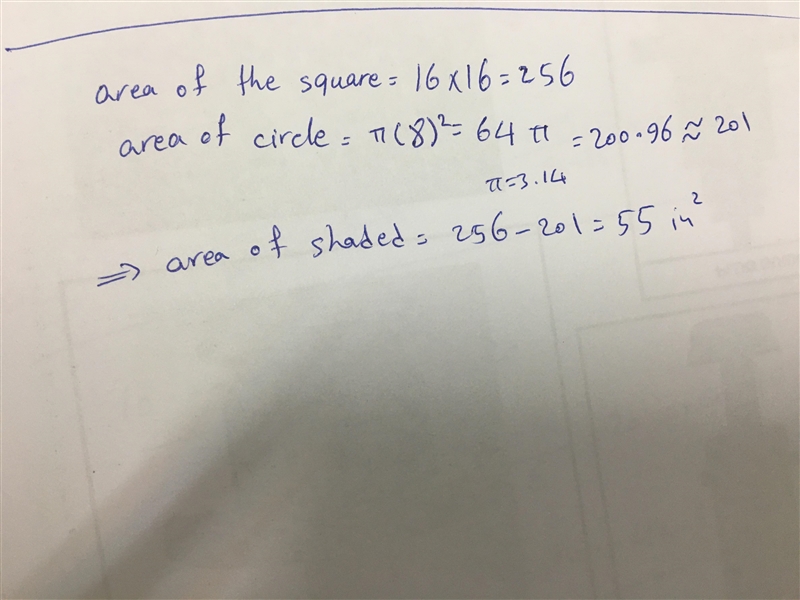 area of the square = 16 x 16 = 256
area of circle = π(8)² = 64 π = 200.96 ≈ 201
π = 3.14
⇒ area of shaded = 256 - 201 = 55 in²